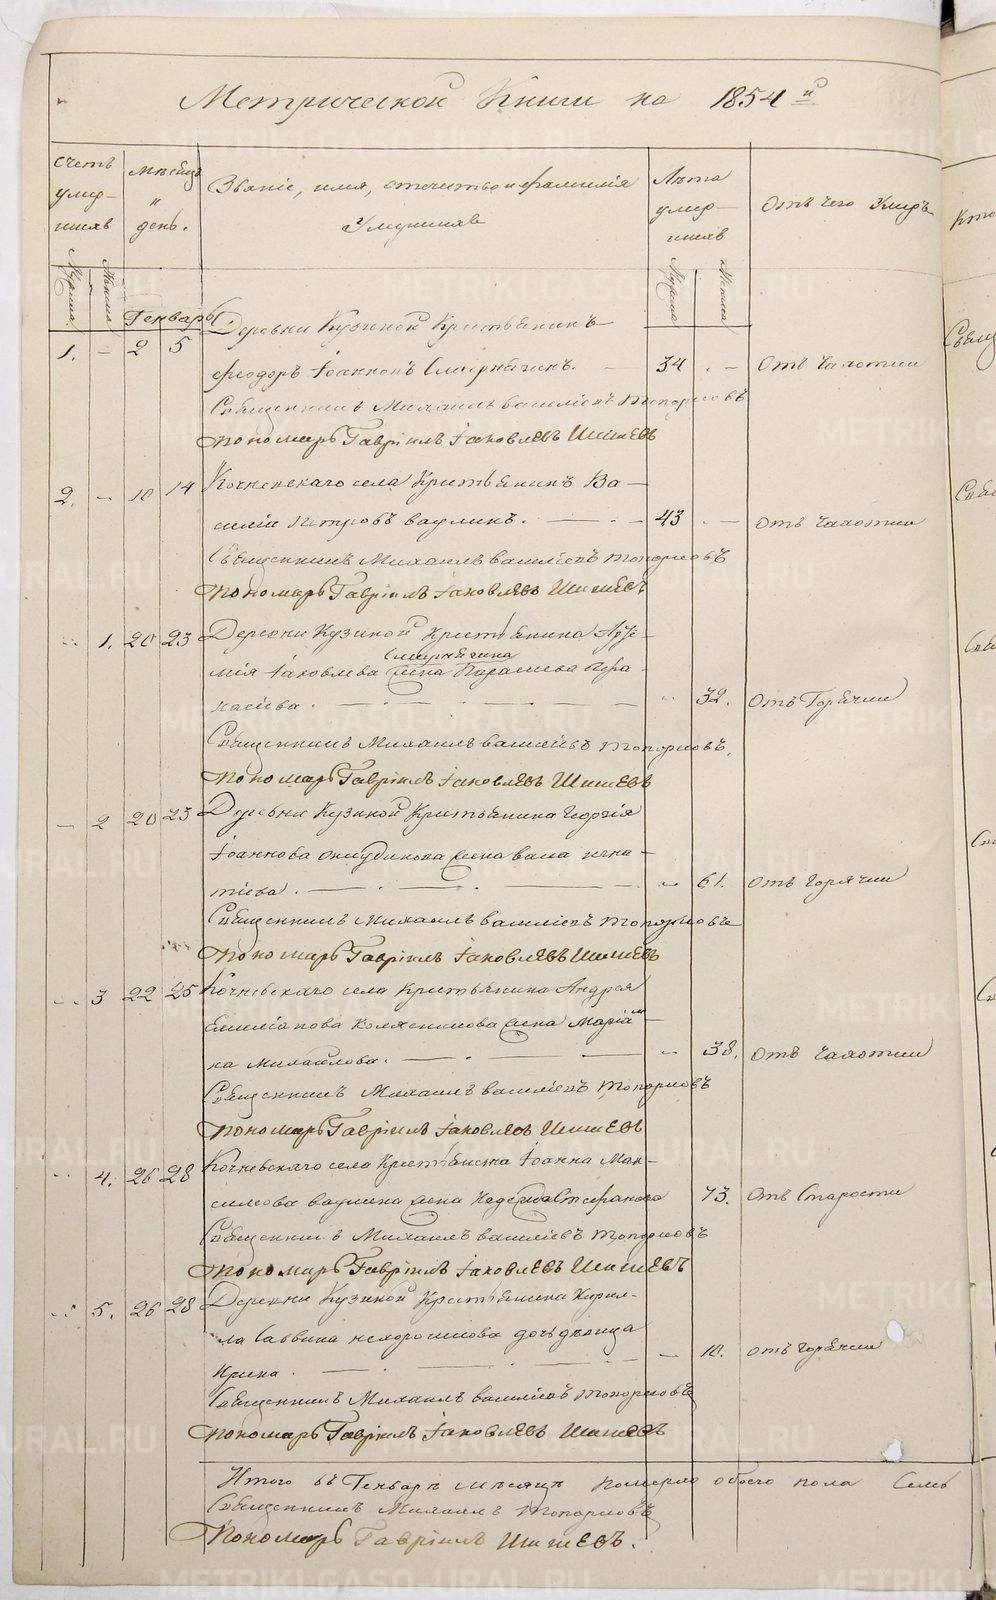 Метрической Книги на 1854 й
Счетъ умершихъ
Мѣсяцъ и день.
Званіе, имя, отечество и фамилія Умершихъ
Лѣта умершихъ
Отъ чего Умеръ
Мужска Женска
Мужска Женска
Генварь
Деревни Кузиной Крестьянинъ
1. – 2 5 Феодоръ Іоанновъ Смирнягинъ. 34 . – Отъ Чахотки
Священникъ Михаилъ Васильевъ Топорковъ
Пономарь Гавріилъ Іаковлевъ Шишевъ
2. – 10 14 Кочневскаго села Крестьянинъ Ва-
силій Петровъ Ваулинъ. 43 . – Отъ Чахотки
Священникъ Михаилъ Васильевъ Топорковъ
Пономарь Гавріилъ Іаковлевъ Шишевъ
1. 20 23 Деревни Кузиной Крестьянина Арте-
Смирнягина
мія Іаковлева жена Параскева Афа-
насіева. 32. Отъ Горячки
Священникъ Михаилъ Васильевъ Топорковъ.
Пономарь Гавріилъ Іаковлевъ Шишевъ
– 2 20 23 Деревни Кузиной Крестьянина Георгія
Іоаннова жена Васса Игна-
тіева. 61. Отъ Горячки
Священникъ Михаилъ Васильевъ Топорковъ
Пономарь Гавріилъ Іаковлевъ Шишевъ
3 22 25 Кочневскаго села Крестьянина Андрея
Емиліанова жена Маріам-
на Михайлова. 38. Отъ Чахотки
Священникъ Михаилъ Васильевъ Топорковъ
Пономарь Гавріилъ Іаковлевъ Шишевъ
4. 26 28 Кочневскаго села Крестьянина Іоанна Мак-
симова Ваулина жена Стефанова 73. Отъ Старости
Священникъ Михаилъ Васильевъ Топорковъ
Пономарь Гавріилъ Іаковлевъ Шишевъ
5. 26 28 Деревни Кузиной Крестьянина Кирил-
ла Саввина Нехорошкова дочь девица
Ирина. Отъ Горячки
Священникъ Михаилъ Васильевъ Топорковъ
Пономарь Гавріилъ Іаковлевъ Шишевъ
Итого въ Генварѣ мѣсяцѣ померло обоего пола Семь
Священникъ Михаилъ Топорковъ
Пономарь Гавріилъ Шишевъ.
METRIKI.GASO-URAL.RU